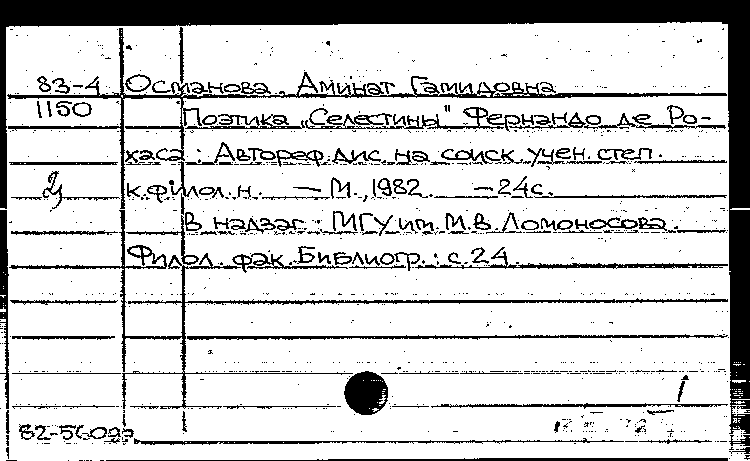 83-4 Османова, Аминат Гамидовна
1150 Поэтика „Селестины" Фернандо де Ро-
хаса : Автореф. дис. на соиск. учен. степ.
к. филол. н. — М., 1982. — 24 с.
В надзаг.: МГУ им. М.В. Ломоносова.
Филол. фак. Библиогр.: с. 24.
1